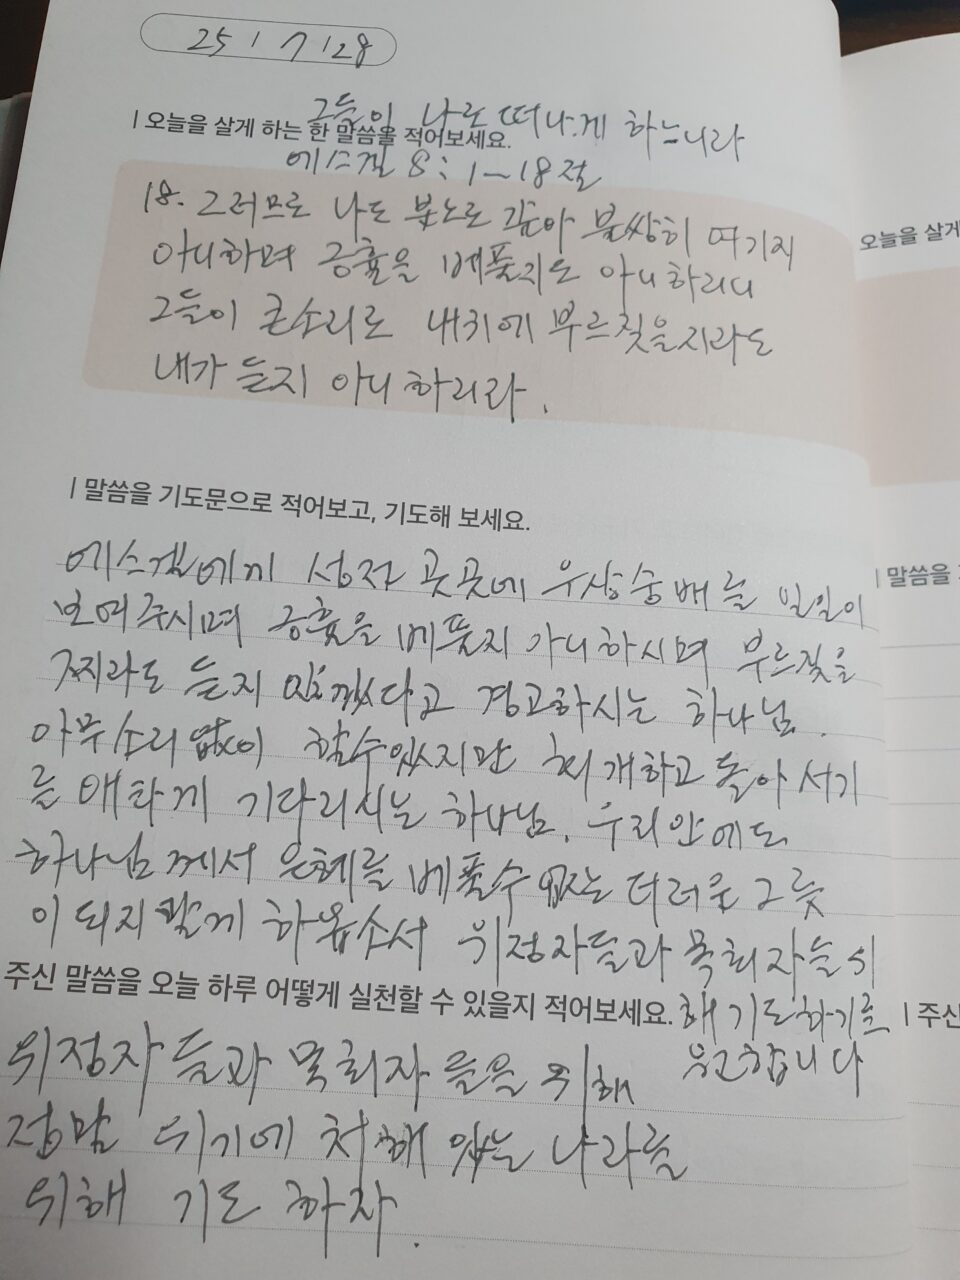 25 / 7 / 28
그들이 나로 떠나게 하느니라
| 오늘을 살게 하는 한 말씀을 적어보세요.
에스겔 8:1~18절
18. 그러므로 나도 분노로 갚아 불쌍히 여기지
아니하며 긍휼을 베풀지도 아니하리니
그들이 큰소리로 내귀에 부르짖을지라도
내가 듣지 아니하리라.
| 말씀을 기도문으로 적어보고, 기도해 보세요.
에스겔에게 성전 곳곳에 우상숭배를 일일이
보여주시며 긍휼을 베풀지 아니하시며 부르짖을
지라도 듣지 않겠다고 경고하시는 하나님.
아무소리없이 할수있지만 회개하고 돌아서기
를 애타게 기다리시는 하나님. 우리안에도
하나님께서 은혜를 베풀수 없는 더러운 그릇
이 되지 않게 하옵소서 위정자들과 목회자들 위
해 기도하기를
원합니다
주신 말씀을 오늘 하루 어떻게 실천할 수 있을지 적어보세요.
위정자들과 목회자들을 위해
정말 위기에 처해 있는 나라를
위해 기도 하자.
오늘을 살게
| 말씀을
| 주신